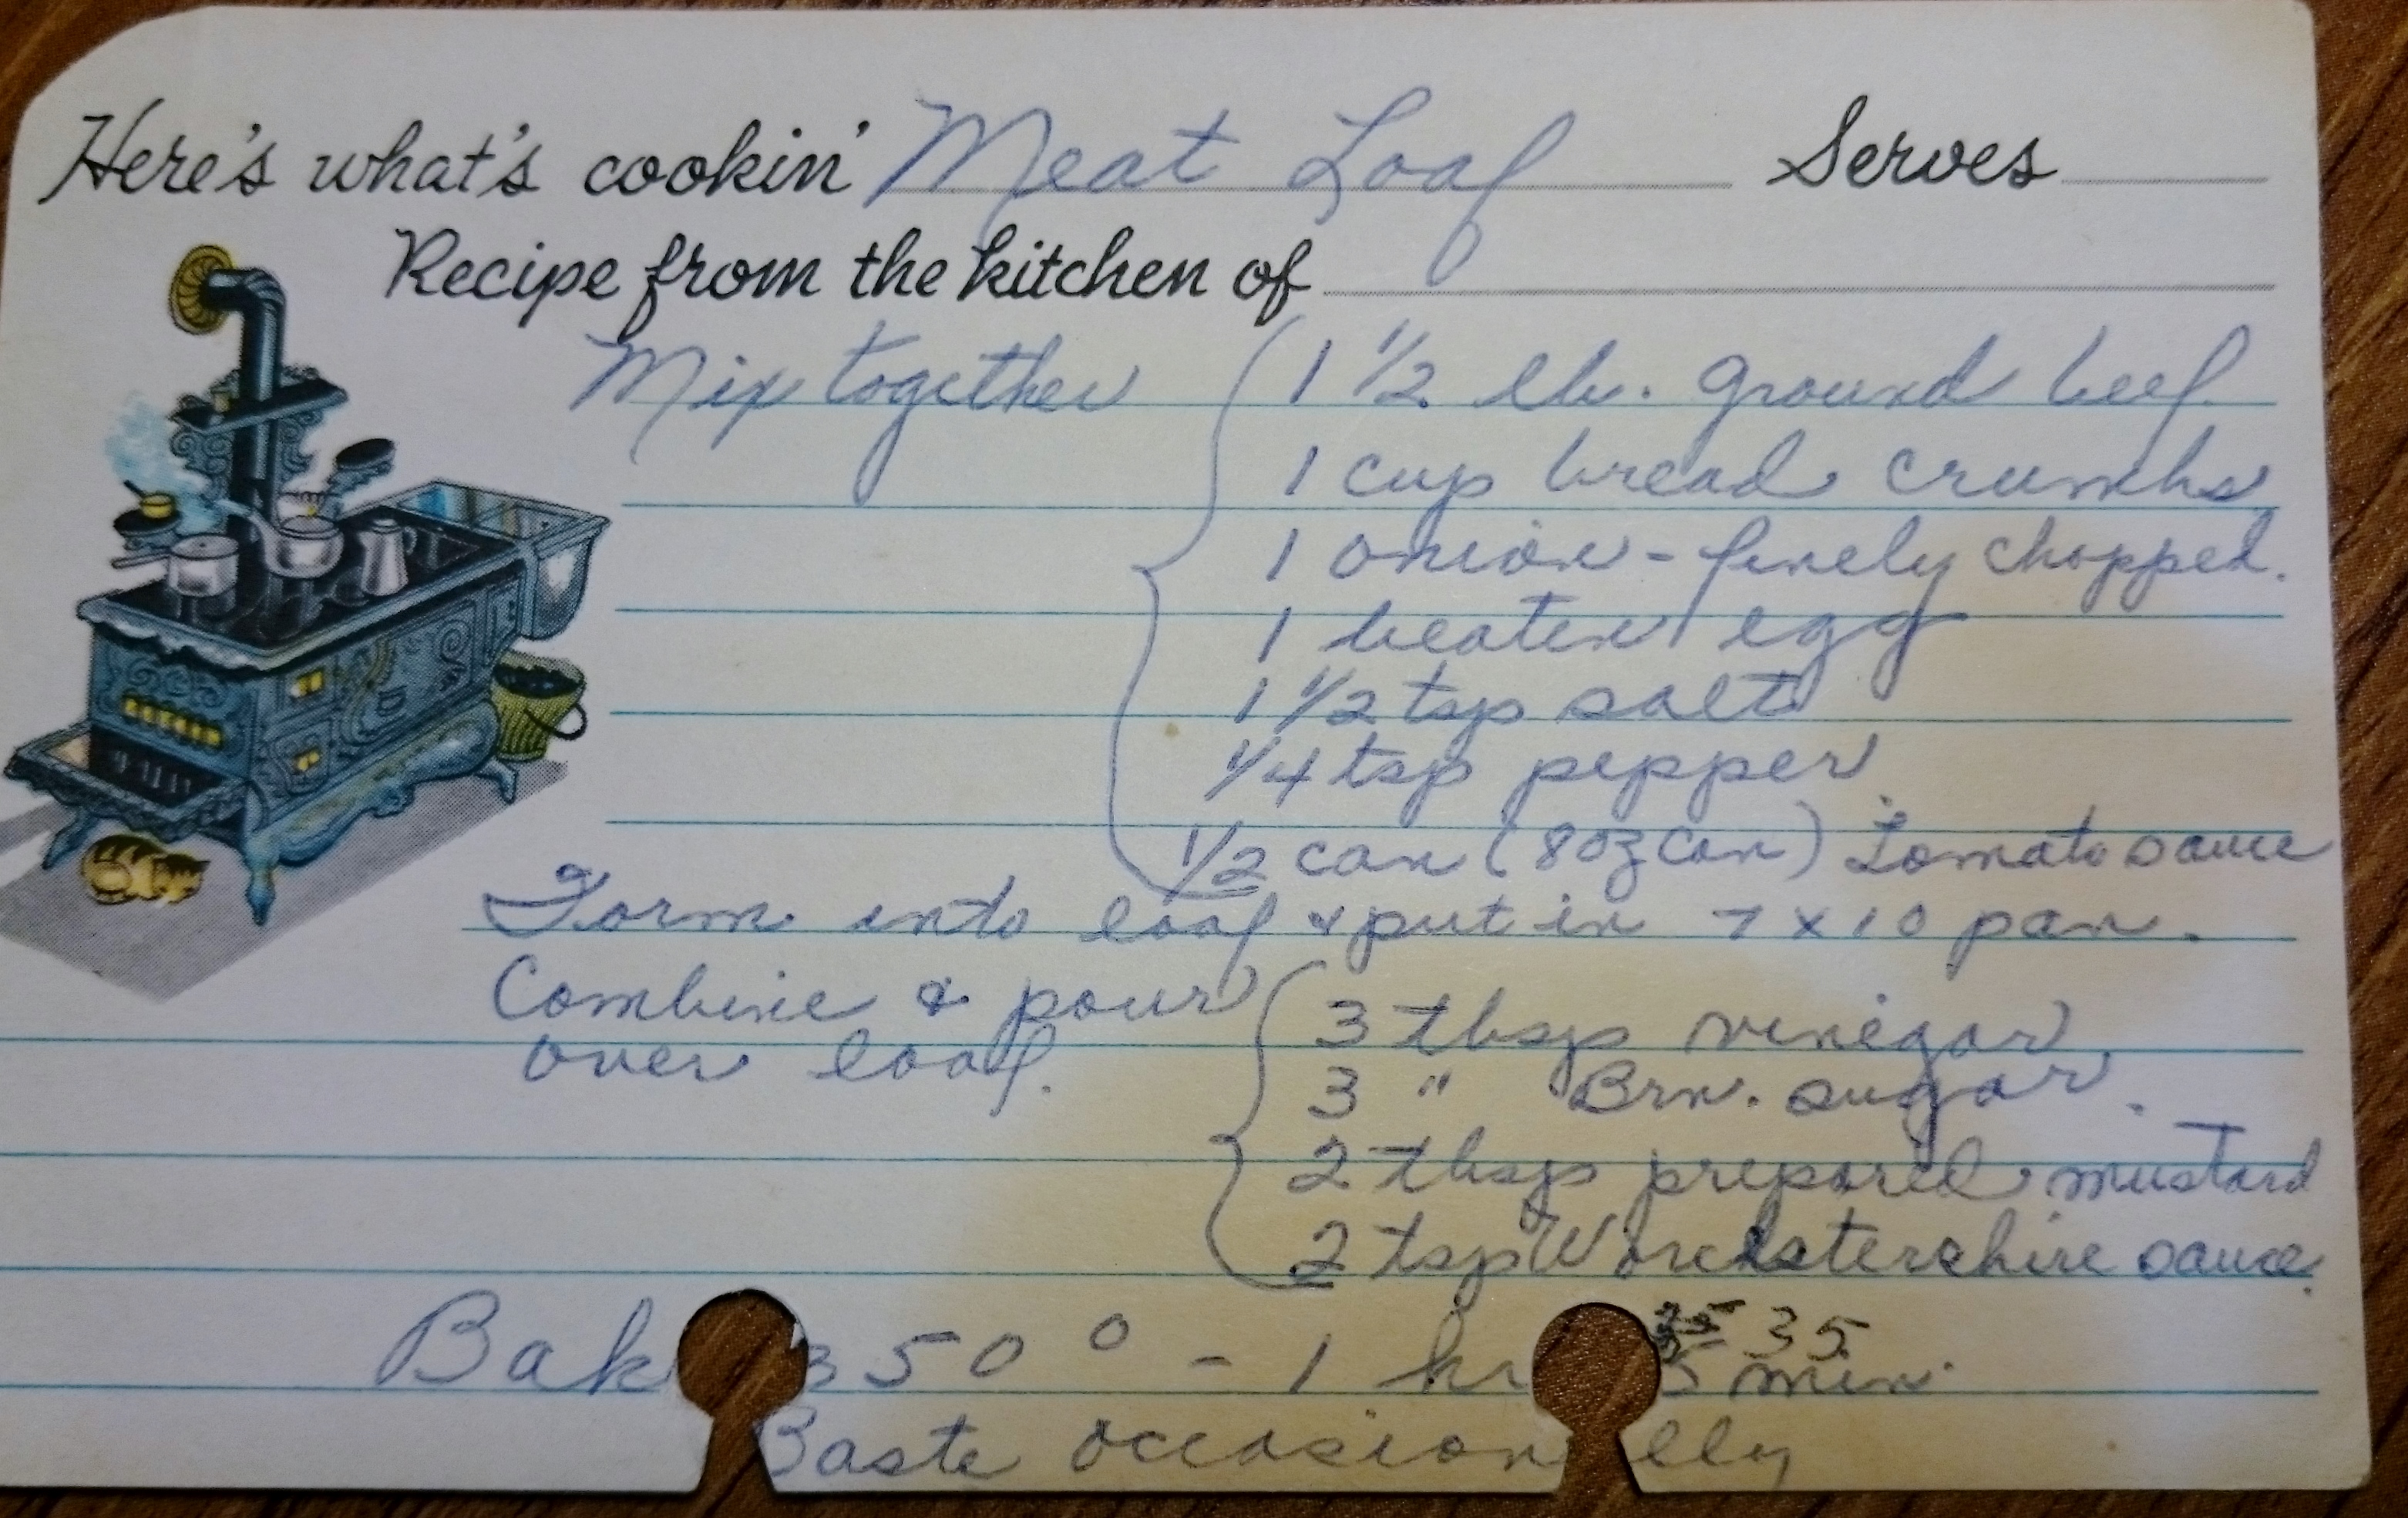 Here's what's cookin' Meat Loaf Serves
Recipe from the kitchen of
Mix together 1 1/2 lb. ground beef
1 cup bread crumbs
1 onion - finely chopped.
1 beaten egg
1 1/2 tsp salt
1/4 tsp pepper
1/2 can (8 oz can) Tomato sauce
Form into loaf & put in 7 x 10 pan.
Combine & pour 3 tbsp vinegar
over loaf. 3 " Brn. sugar.
2 tbsp prepared mustard
2 tsp Worchstershire sauce.
35
Bak 350° - 1 hr 5 min.
Baste occasion lly